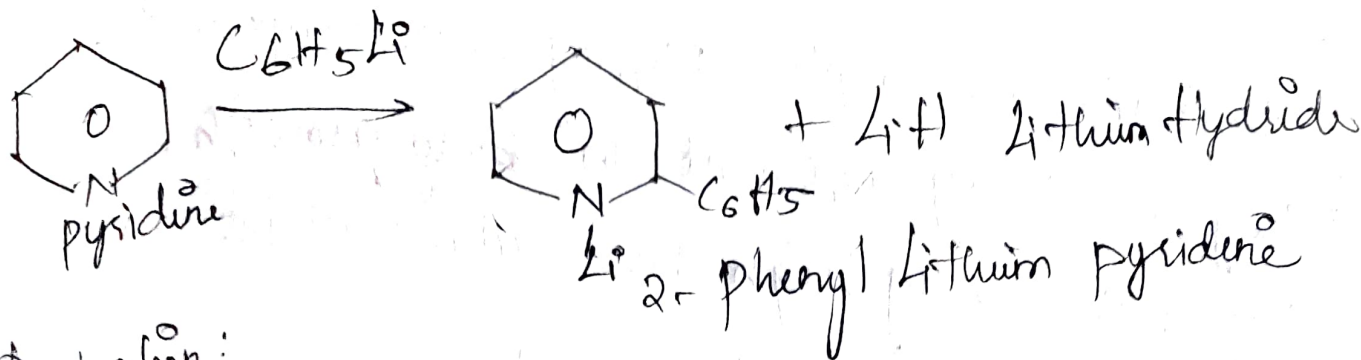 C6H5Li
N
pyridine
N
C6H5
Li
+ LiH Lithium Hydride
2- phenyl Lithium pyridine